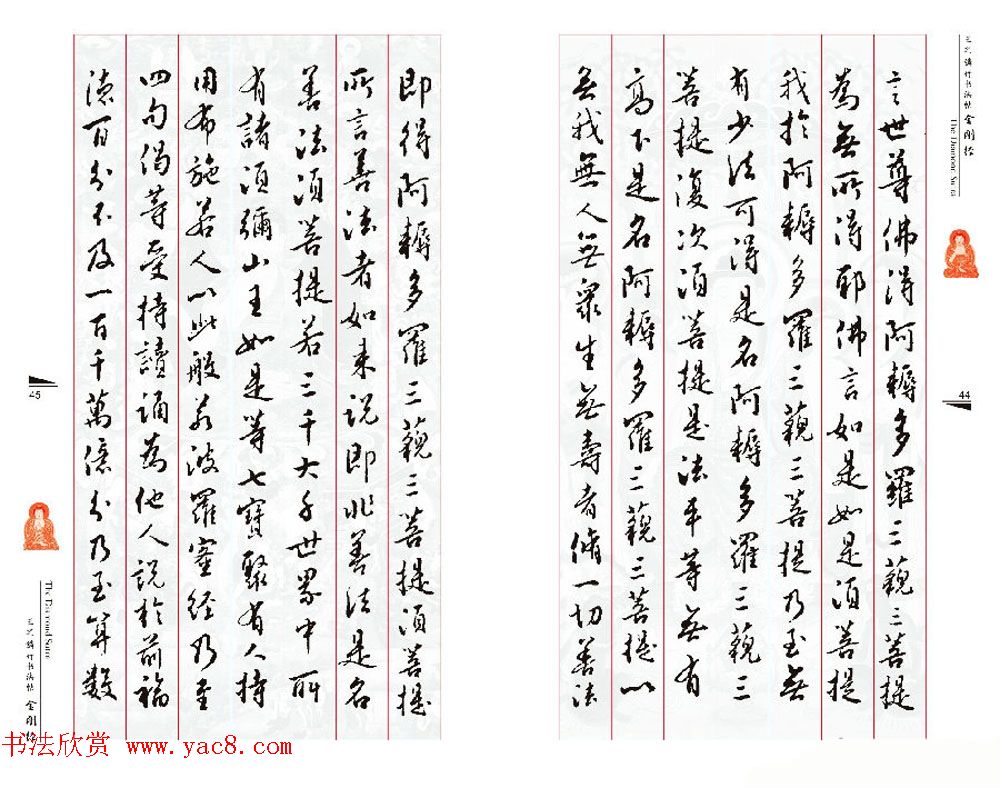 言世尊佛得阿耨多羅三藐三菩提
為無所得耶佛言如是如是須菩提
我於阿耨多羅三藐三菩提乃至無
有少法可得是名阿耨多羅三藐三
菩提復次須菩提是法平等無有
高下是名阿耨多羅三藐三菩提以
無我無人無眾生無壽者脩一切善法
即得阿耨多羅三藐三菩提須菩提
所言善法者如来説即非善法是名
善法須菩提若三千大千世界中所
有諸須彌山王如是等七寶聚有人持
用布施若人以此般若波羅蜜經乃至
四句偈等受持讀誦為他人説於前福
德百分不及一百千萬億分乃至算數
书法帖 金刚经
The Diamond Sutra
44
45
The Diamond Sutra
书法帖 金刚经
书法欣赏 www.yac8.com